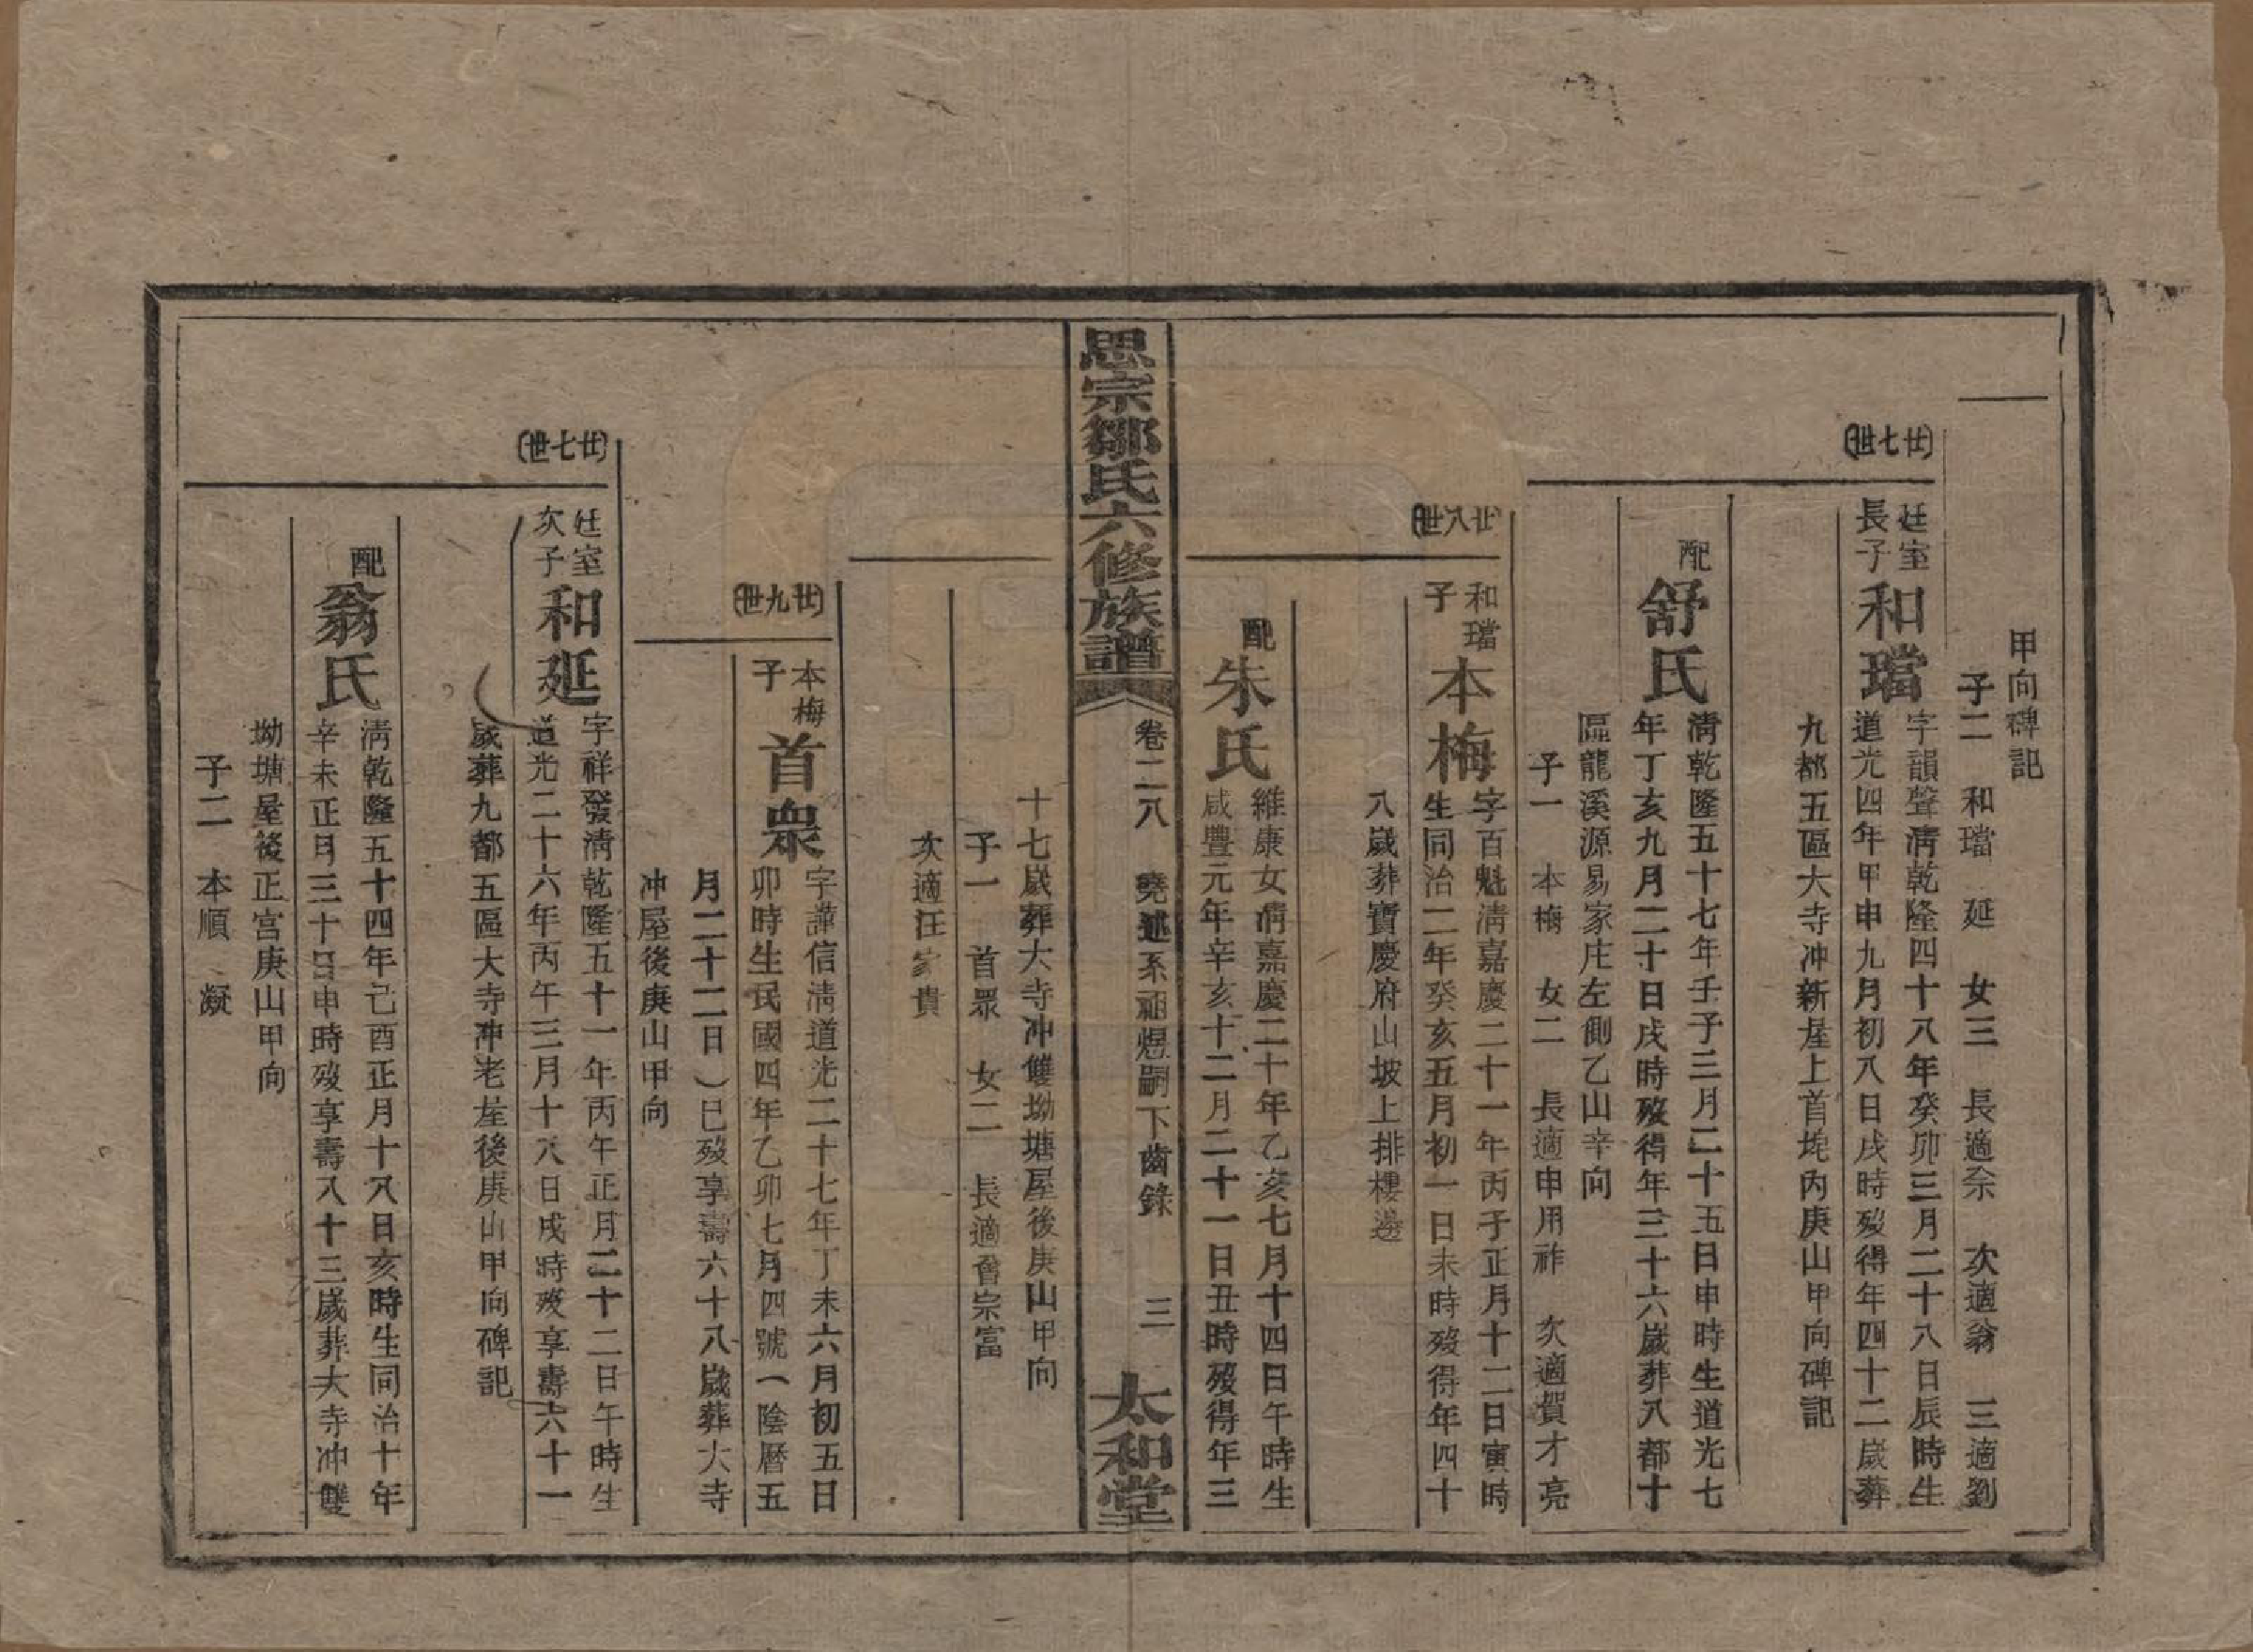 甲向碑記
子二　和璫　延　女三　長適余　次適翁　三適劉
（廿七世）
廷室長子　和璫
字韻聲清乾隆四十八年癸卯三月二十八日辰時生
道光四年甲申九月初八日戌時歿得年四十二歲葬
九都五區大寺冲新屋上首垞內庚山甲向碑記
配　舒氏
清乾隆五十七年壬子三月二十五日申時生道光七
年丁亥九月二十日戌時歿得年三十六歲葬八都十
區龍溪源易家庄左側乙山辛向
子一　本梅　女二　長適申用祚　次適賀才亮
（廿八世）
和璫子　本梅
字百魁清嘉慶二十一年丙子正月十二日寅時
生同治二年癸亥五月初一日未時歿得年四十
八歲葬寶慶府山坡上排樓邊
配　朱氏
維康女清嘉慶二十年乙亥七月十四日午時生
咸豐元年辛亥十二月二十一日丑時歿得年三
思宗鄒氏六修族譜　卷二八　堯述系祖焜嗣下齒錄　三　太和堂
十七歲葬大寺冲雙坳塘屋後庚山甲向
子一　首眾　女二　長適曾宗富
次適汪家貴
（廿九世）
本梅子　首眾
字謹信清道光二十七年丁未六月初五日
卯時生民國四年乙卯七月四號（陰曆五
月二十二日）巳歿享壽六十八歲葬大寺
冲屋後庚山甲向
（廿七世）
廷室次子　和延
字祥發清乾隆五十一年丙午正月二十二日午時生
道光二十六年丙午三月十八日戌時歿享壽六十一
歲葬九都五區大寺冲老屋後庚山甲向碑記
配　翁氏
清乾隆五十四年己酉正月十八日亥時生同治十年
辛未正月三十日申時歿享壽八十三歲葬大寺冲雙
坳塘屋後正宫庚山甲向
子二　本順　凝